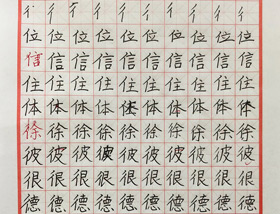 彳彳彳彳彳彳彳彳彳彳
位位位位位位位位位位
信信信信信信信信信信
住住住住住住住住住住
体体体体体体体体体体
徐徐徐徐徐徐徐徐徐徐
彼彼彼彼彼彼彼彼彼彼
很很很很很很很很很很
德德德德德德德德德德